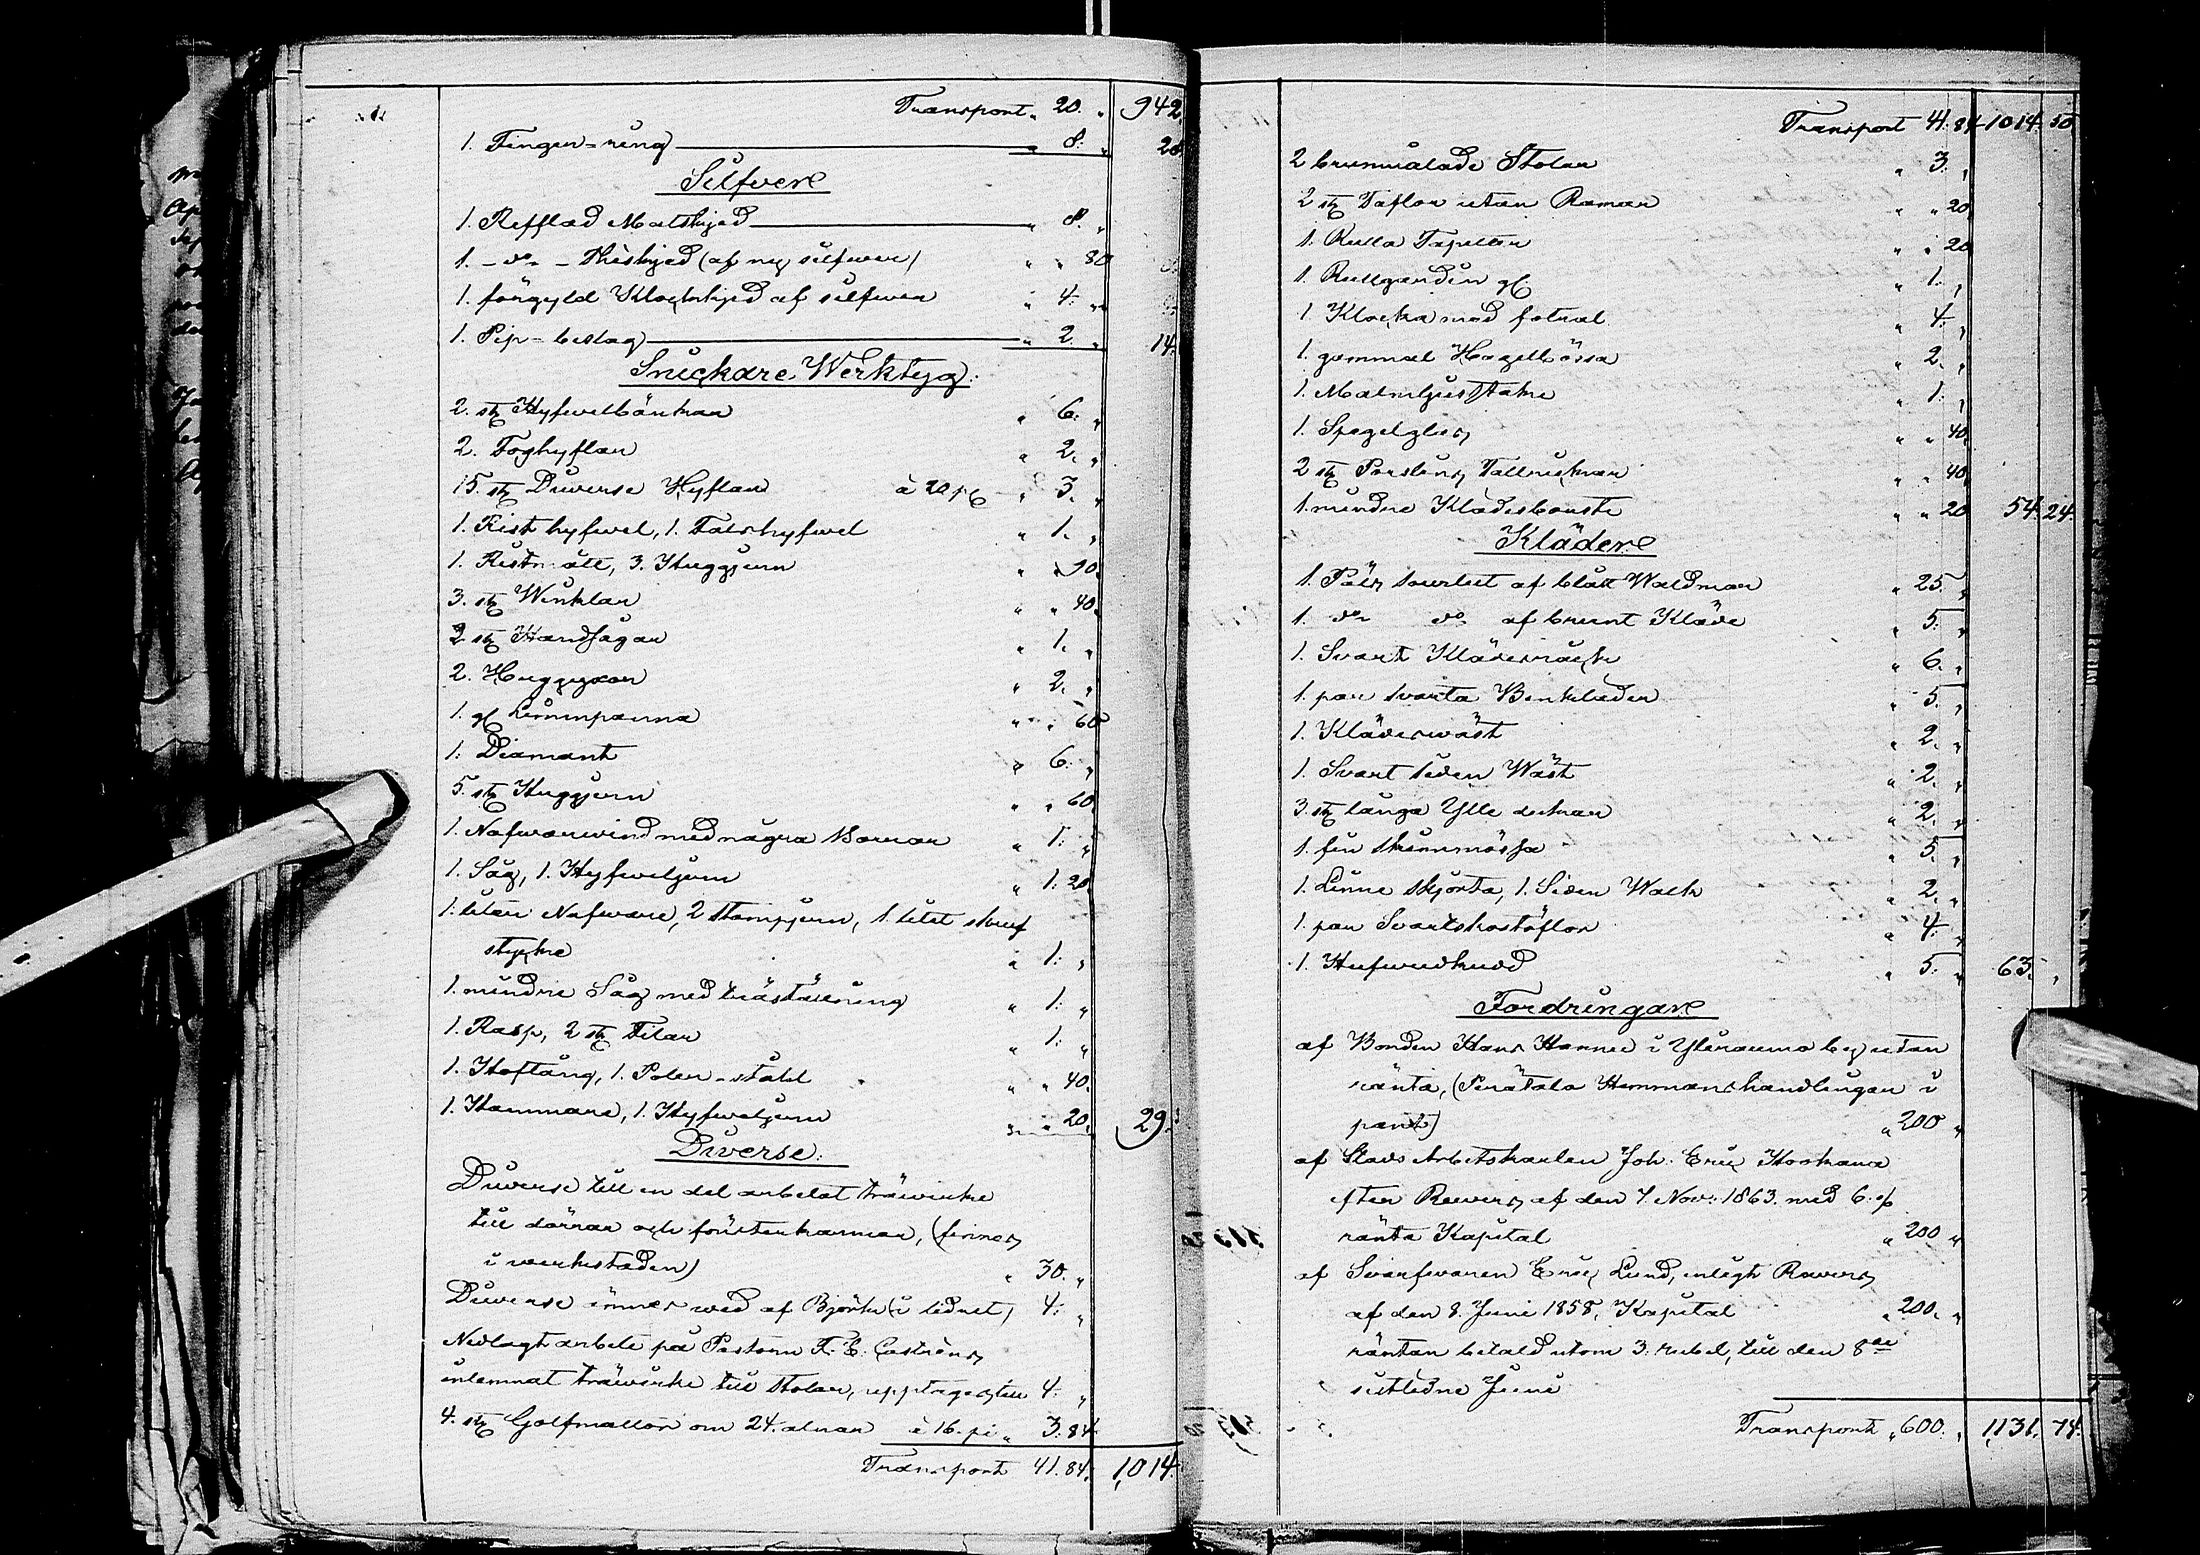 Transport " 20. " 942.
1. Finger-ring " 8. " 28
Silfver
1. Refflad Matskjed " 8. "
1. - do - Theskjed (af ny silfwer) " " 80
1. förgyld Klockskjed af silfwer " 4. "
1. Pip-beslag " 2. " 14.
Snickare Werktyg:
2. st. Hyfwelbänkar " 6. "
2. Foghyflar " 2. "
15. st. Diverse Hyflar à 20 p. " 3. "
1. Kist hyfwel, 1. Falshyfwel " 1. "
1. Ristmått, 3. Huggjern " " 90.
3. st. Winklar " " 40.
2 st. Handsågar " 1. "
2. Huggyxor " 2. "
1. gl. Limmpanna " " 60
1. Diamant " 6. "
5. st. Huggjern " " 60
1. Nafwarwind med några Borrar " 1. "
1. Såg, 1. Hyfweljern " 1. 20.
1. liten Nafware, 2 stampjern, 1. litet skruf
stycke " 1. "
1. mindre Såg med träställning " 1. "
1. Rasp, 2 st. Filar " 1. "
1. Hoftång, 1. Poler-stahl " " 40.
1. Hammare, 1. Hyfweljern " " 20. 29.
Diverse:
Diverse till en del arbetat träwirke
till dörrar och fönsterkarmar, (finnes
i werkstaden) " 30. "
Diverse ämnes wed af Björk (i lidret) 4. "
Nedlagt arbete på Pastorn F. E. Castréns
inlemnat träwirke till stolar, upptages till 4. "
4. st. Golfmattor om 24. alnar à 16. pi " 3. 84.
Transport 41. 84. 1,014.
Transport 41. 84 1014. 50
2 brunmålade Stolar " 3. "
2 st. Taflor utan Ramar " " 20
1. Rulla Tapeter " " 20
1. Rullgardin gl. " 1. "
1 Klocka med fotral " 4. "
1. gammal Hagelbössa " 2. "
1. Malmljusstake " 1. "
1. Spegelglas " " 40.
2 st. Porslins Tallrickar " " 40.
1. mindre Klädesborste " " 20 54. 24.
Kläder
1. Päls surtut af blått Waldmar " 25. "
1. do do af brunt Kläde " 5. "
1. Svart Klädesrock " 6. "
1. par svarta Benkläder " 5. "
1. Klädeswäst " 2. "
1. Svart siden Wäst " 2. "
3. st. långa Ylle dukar " 2. "
1. fin skinnmössa " 5. "
1. Linne skjorta, 1. Siden Walk " 2. "
1. par Svartskostöflor " 4. "
1. Hufwudkudd " 5. " 63. "
Fordringar
af Bonden Hans Hannu i Ylirauma by utan
ränta, (Perätalo Hemmans handlingar i
pant) " 200 "
af Stads Arbetskarlen Joh. Eric Hoskama
efter Revers af den 7. Nov. 1863. med 6. %
ränta Kapital " 200 "
af Svarfvaren Eric Lund, enligt Revers
af den 8. Juni 1858, Kapital " 200. "
räntan betald utom 3. rubel, till den 8de
sistledne Juni
Transport " 600. " 1,131. 74.